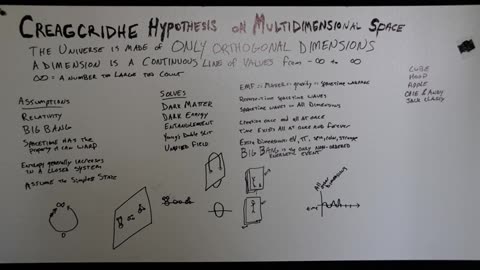 CREAGCRIDHE HYPOTHESIS ON MULTIDIMENSIONAL SPACE
THE UNIVERSE IS MADE OF ONLY ORTHOGONAL DIMENSIONS
A DIMENSION IS A CONTINUOUS LINE OF VALUES FROM -∞ TO ∞
= A NUMBER TO LARGE TO COUNT
ASSUMPTIONS
RELATIVITY
BIG BANG
SPACETIME HAS THE
PROPERTY OF
Entropy generally increases
IN A CLOSED SYSTEM
ASSUME THE SIMPLEST STATE
SOLVES
DARK MATTER
DARK ENERGY
ENTANGLEMENT
Young's Double Slit
UNIFIED FIELD
EMF = MATTER = gravity = SPACETIME
SPACETIME WAVES
SPACETIME WAVES IN ALL DIMENSIONS
Creation once and all at once
Time Exists All at once and Forever
Extra Dimensions:
BIG BANG is the only NON-ORDERED
ENERGETIC EVENT
CUBE
HOOD